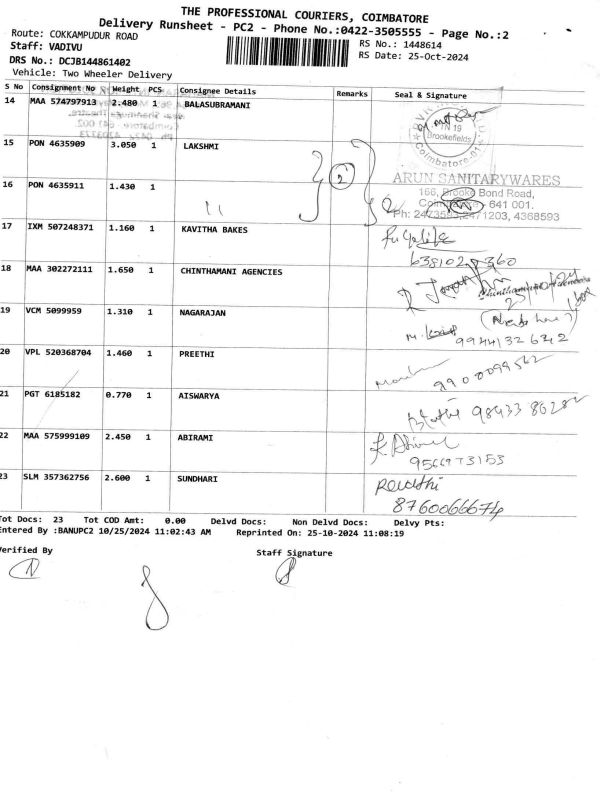 THE PROFESSIONAL COURIERS, COIMBATORE
Delivery Runsheet - PC2 - Phone No.:0422-3505555 - Page No.:2
Route: COKKAMPUDUR ROAD
RS No.: 1448614
Staff: VADIVU
RS Date: 25-Oct-2024
DRS No.: DCJB144861402
Vehicle: Two Wheeler Delivery
S No Consignment No Weight PCS Consignee Details Remarks Seal & Signature
14 MAA 574797913 2.480 1 BALASUBRAMANI
TN 19
Brookefields
Coimbatore-01
15 PON 4635909 3.050 1 LAKSHMI
2
ARUN SANITARYWARES
16 PON 4635911 1.430 1
166, Brooke Bond Road,
641 001.
Ph: 2473595,2471203, 4368593
17 IXM 507248371 1.160 1 KAVITHA BAKES
18 MAA 302272111 1.650 1 CHINTHAMANI AGENCIES
19 VCM 5099959 1.310 1 NAGARAJAN
20 VPL 520368704 1.460 1 PREETHI
9900099562
21 PGT 6185182 0.770 1 AISWARYA
22 MAA 575999109 2.450 1 ABIRAMI
9566973153
23 SLM 357362756 2.600 1 SUNDHARI
Revathi
8760066674
Tot Docs: 23 Tot COD Amt: 0.00 Delvd Docs: Non Delvd Docs: Delvy Pts:
Entered By :BANUPC2 10/25/2024 11:02:43 AM Reprinted On: 25-10-2024 11:08:19
Verified By
Staff Signature